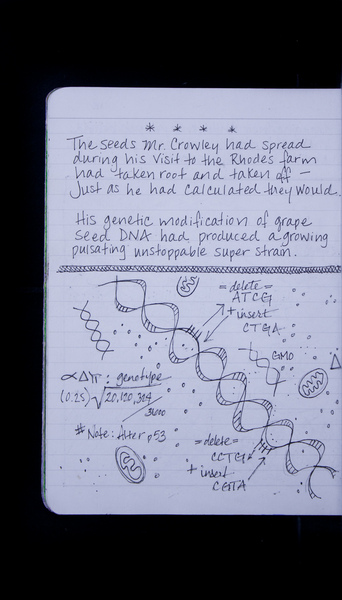 * * * *
The seeds Mr. Crowley had spread
during his visit to the Rhodes farm
had taken root and taken off —
Just as he had calculated they would.
His genetic modification of grape
seed DNA had produced a growing
pulsating unstoppable super strain.
= delete =
ATCG
+ insert
CTGA
GMO
Δ
∝ΔYr: genotype
(0.25)√20,120,324
/3600
#Note: Alter p53
= delete =
CCTG
+ insert
CGTA